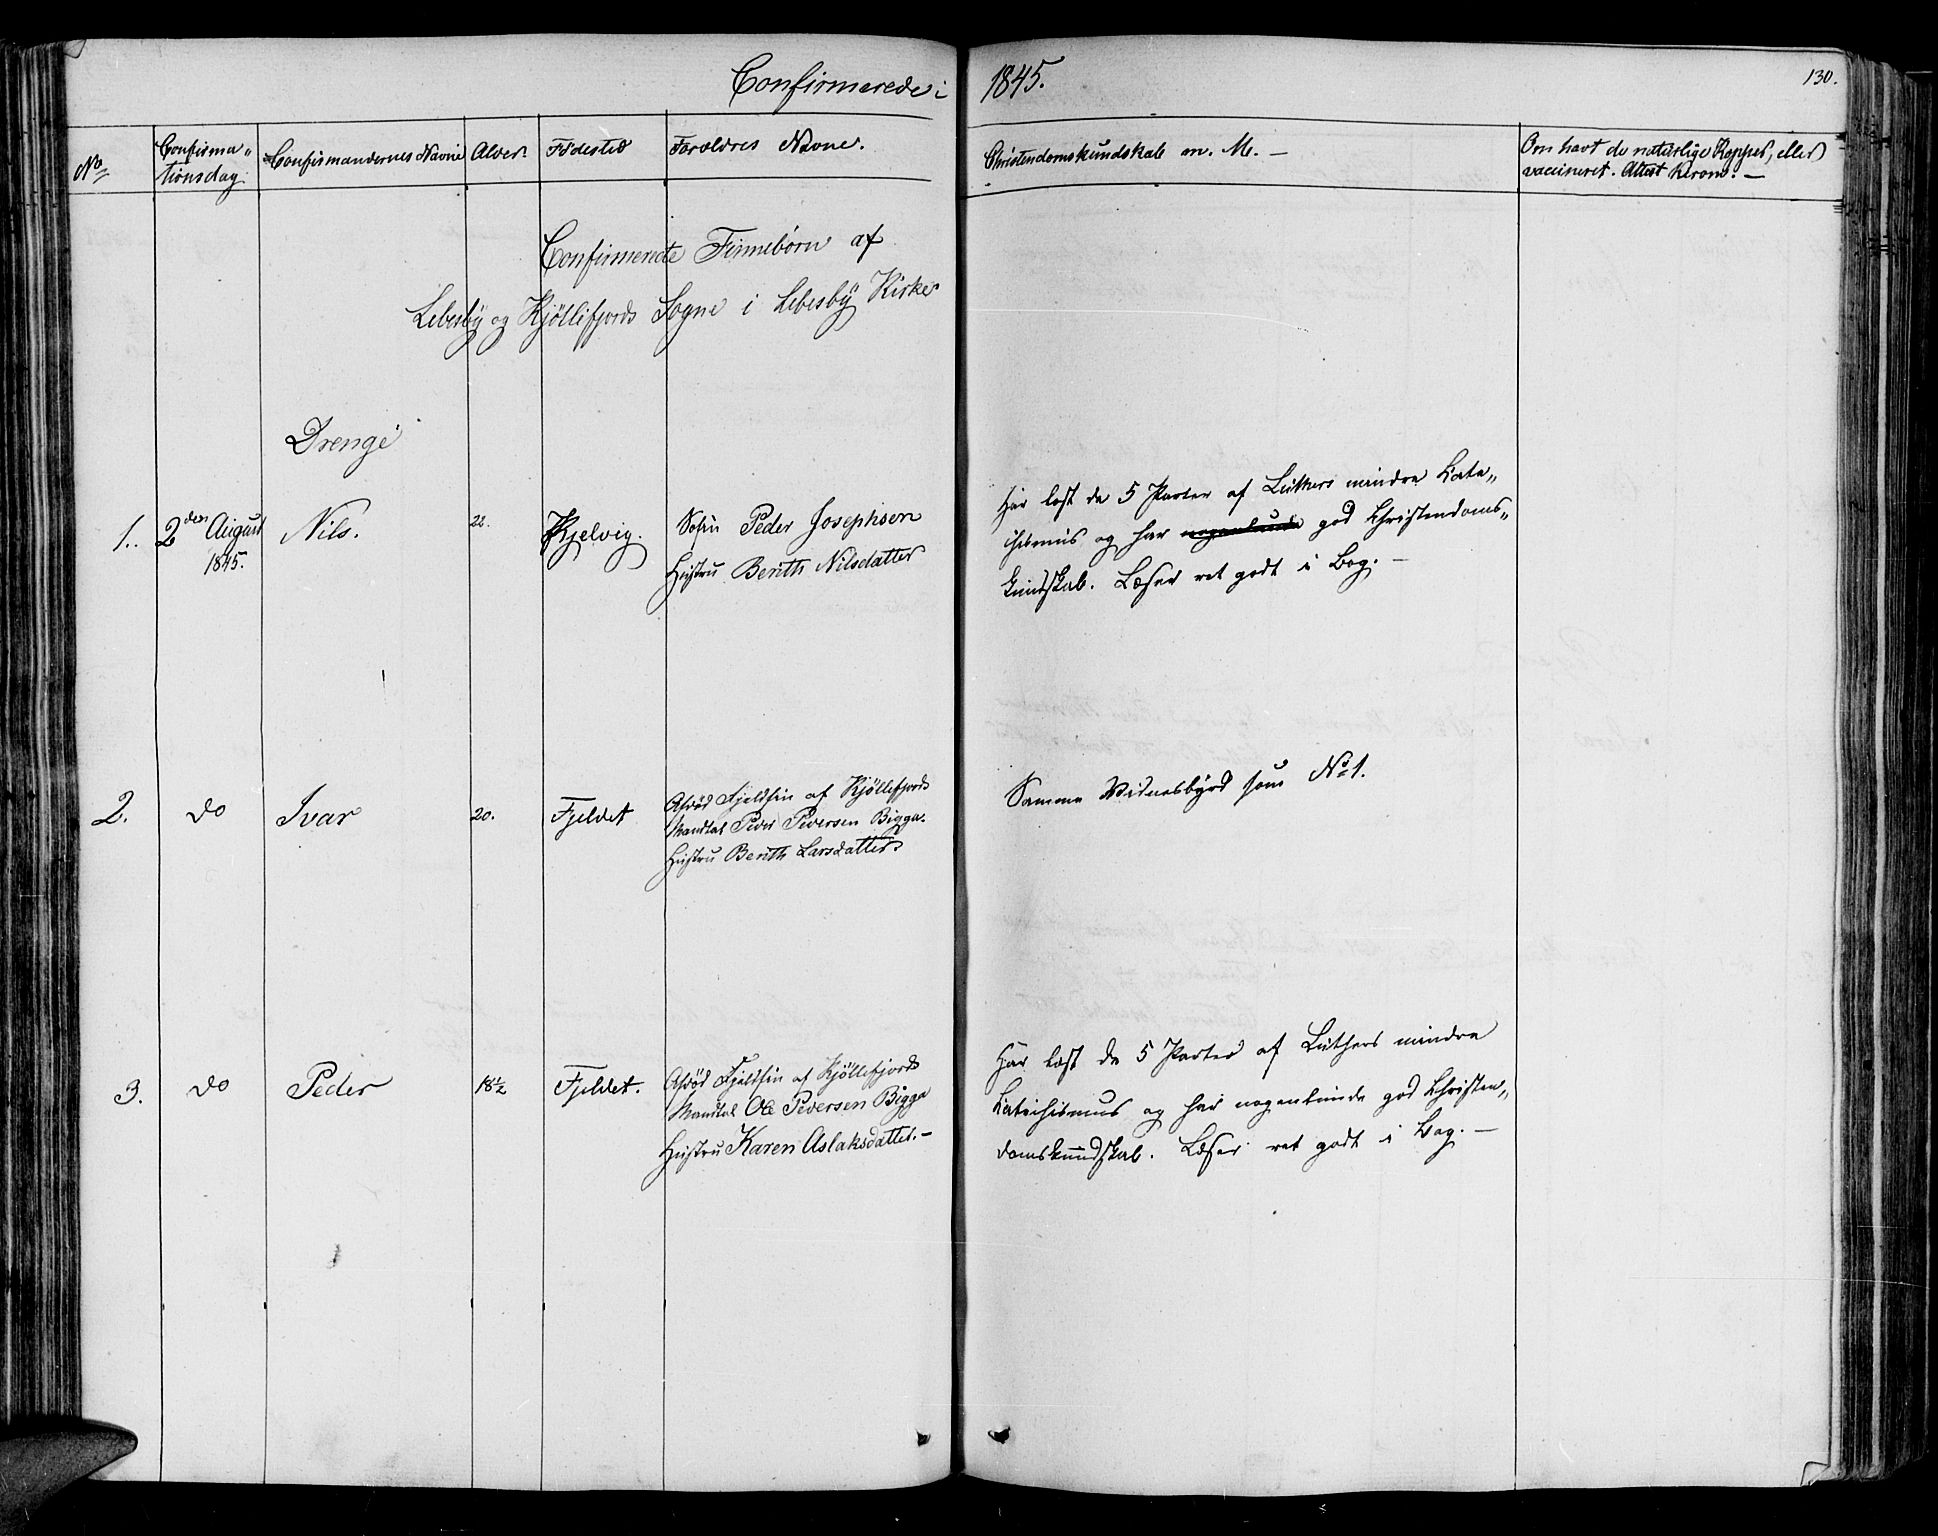 Confirmerede i 1845.
130.
No
Confirma„
tionsdag
Confirmandernes Navne
Alder
Födested
Forældres Navne.
Christendomskundskab m. M. —
Om havt de naturlige Kopper, eller
vaccineret. Attest herom. —
Confirmerede Finnebörn af
Lebesby og Kjöllefjords Sogne i Lebesby Kirke
Drenge
1.
2den August
1845.
Nils.
22.
Kjelvig.
Söfin Peder Josephsen
Hustru Berith Nilsdatter
Har læst de 5 Parter af Luthers mindre Kate„
chismus og har nogenlunde god Christendoms„
kundskab. Læser ret godt i Bog. —
2.
do
Ivar
20.
Fjeldet
Afdöd Fjeldfin af Kjöllefjords
Mandtal Peder Pedersen Bigga.
Hustru Berith Larsdatter
Samme Vidnesbyrd som No 1.
3.
do
Peder
18½
Fjeldet.
Afdöd Fjeldfin af Kjöllefjords
Mandtal Ole Pedersen Bigga
Hustru Karen Aslaksdatter. —
Har læst de 5 Parter af Luthers mindre
Katechismus og har nogenlunde god Christen„
domskundskab. Læser ret godt i Bog. —